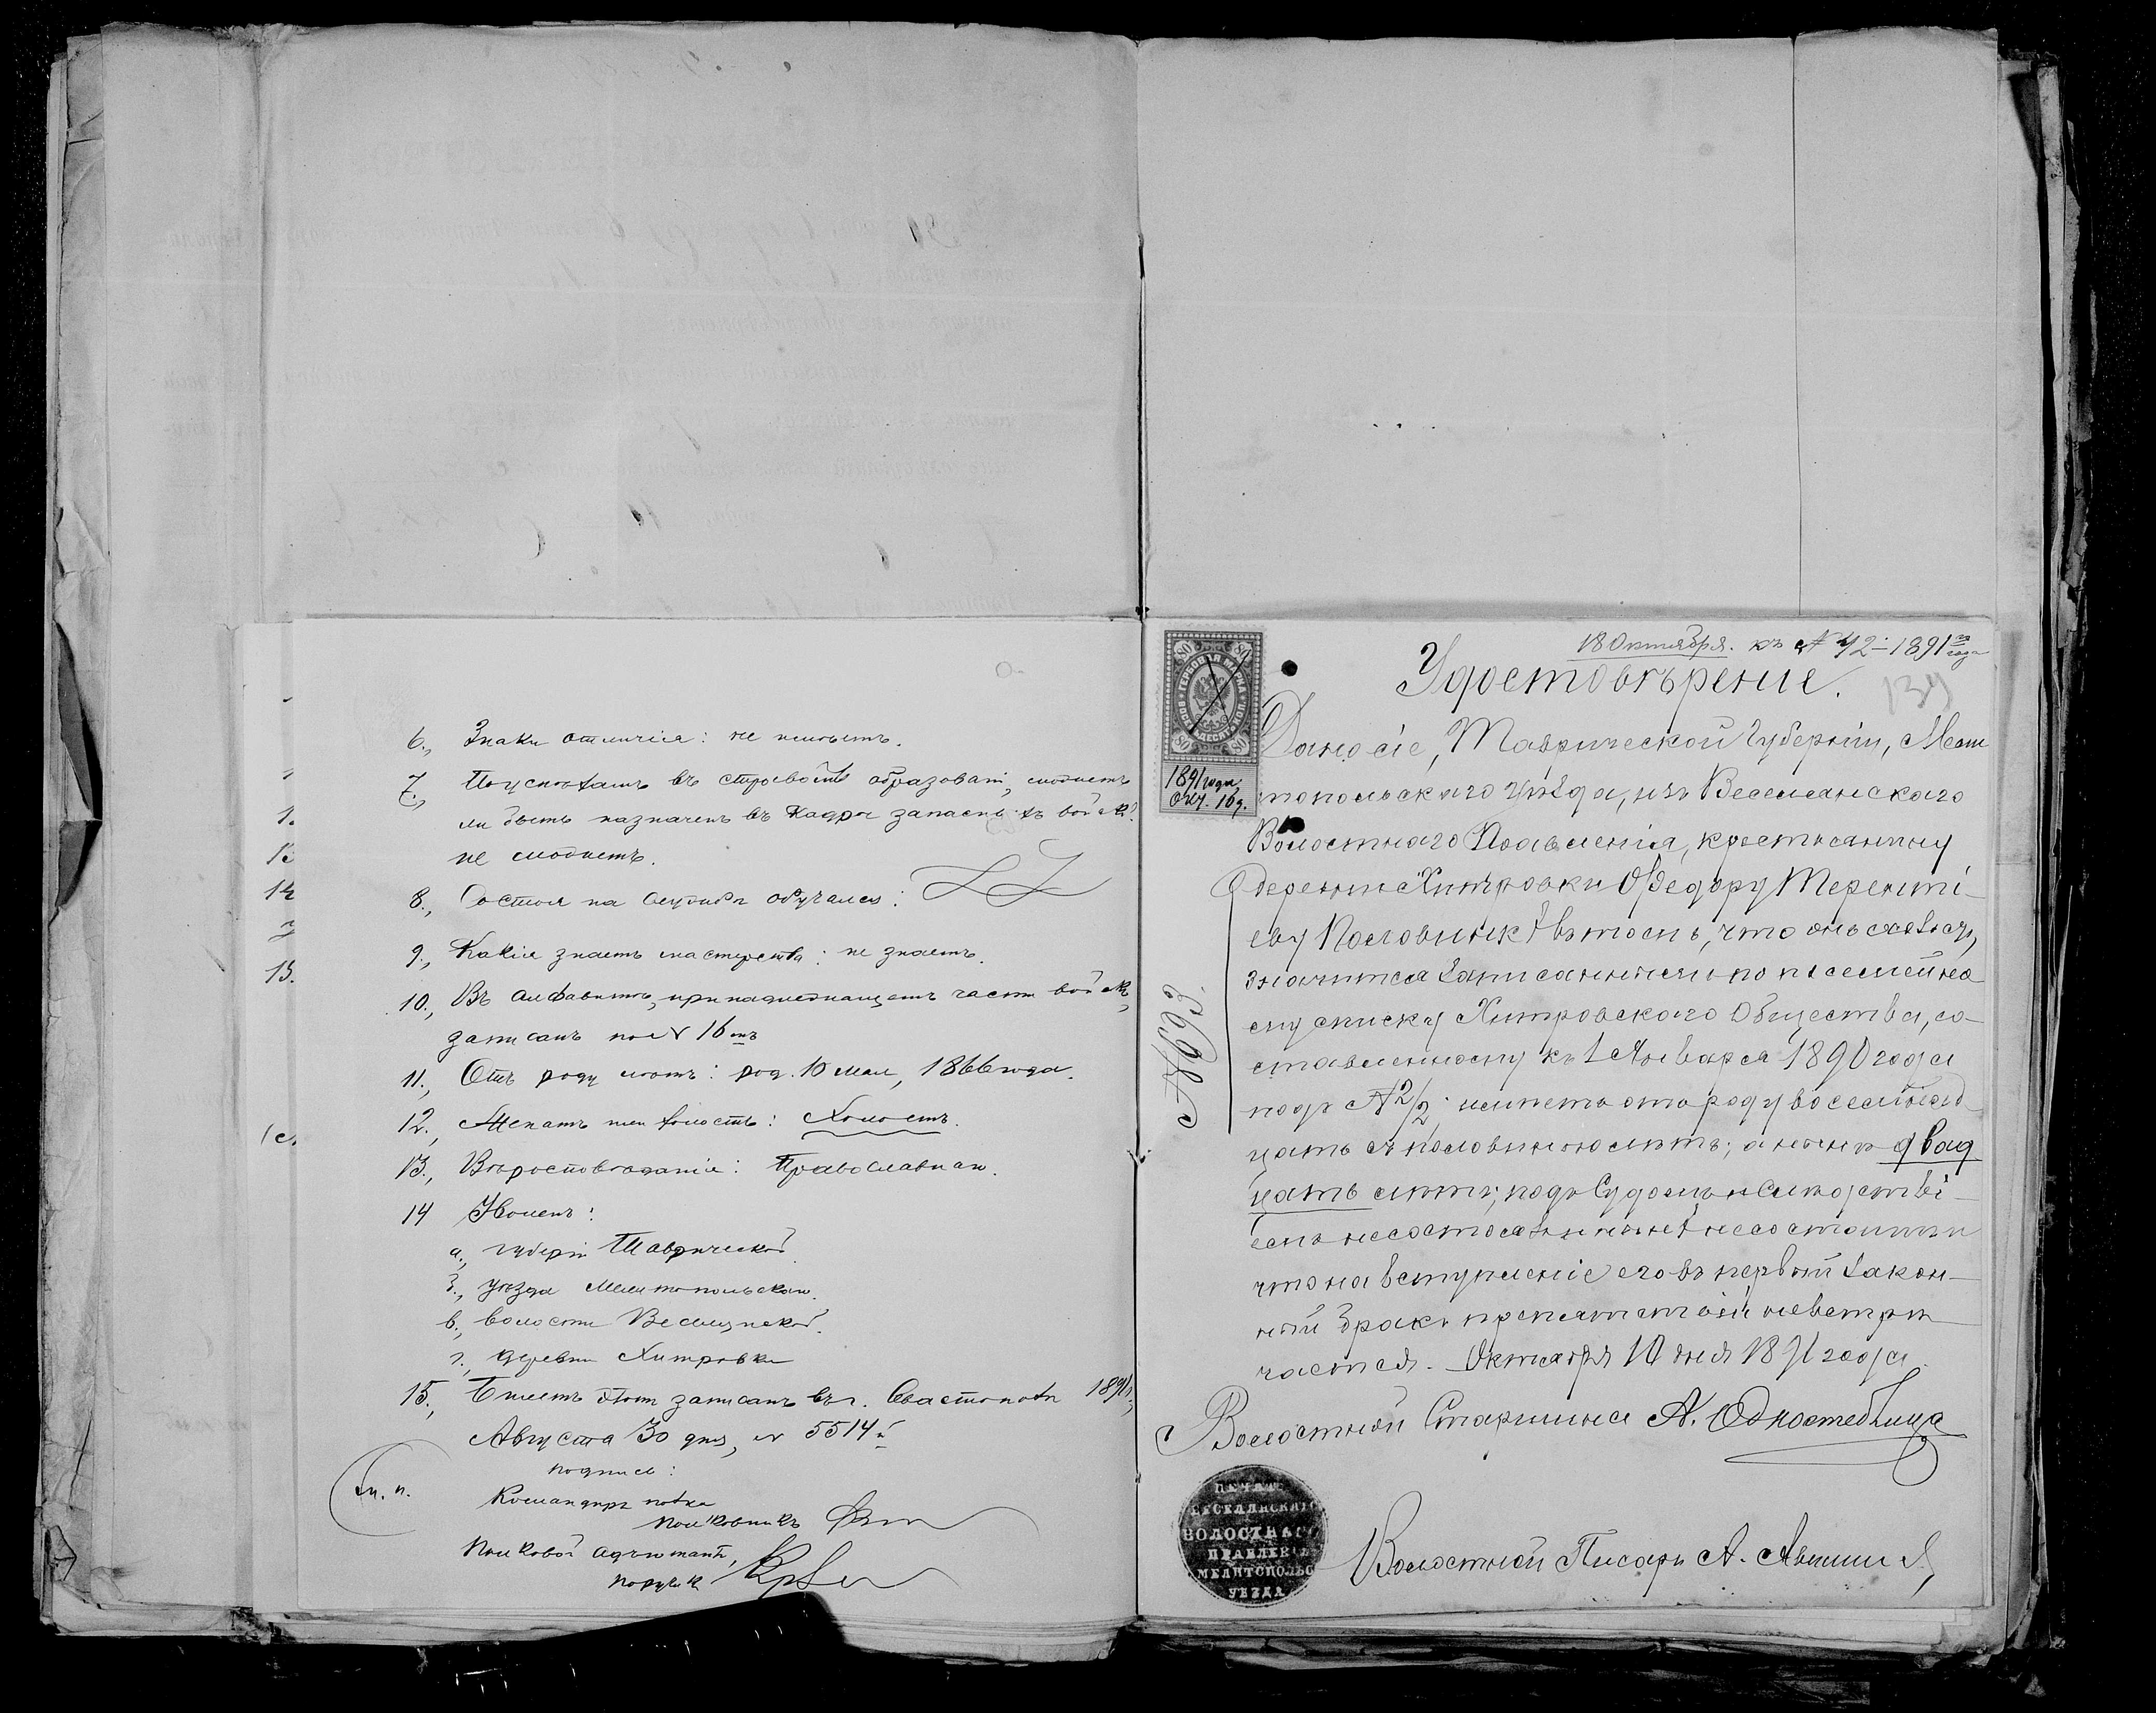 6., Знаки отличія: не имѣетъ.
7., По успѣхамъ въ строевомъ образовані, можетъ
ли быть назначенъ въ кадры запасныхъ войскъ:
не можетъ.
8., Состоя на службѣ обучался:
9., Какія знаетъ мастерства: не знаетъ.
10., Въ алфавитъ, принадлежащемъ части войскъ,
записанъ по № 16мъ
11., Отъ роду лѣтъ: род. 10 Мая, 1866 года.
12., Женатъ или холостъ: Холостъ.
13., Вѣроисповѣданія: Православнаго.
14 Уволенъ:
а., губерніи Таврической
б., уѣзда Мелитопольскаго.
в., волости Веселянской.
г., деревни Хитровки
15., Билетъ этотъ записанъ въ г. Севастополѣ 1891г.,
Августа 30 дня, № 5514й
подпись:
М. п.
Командиръ полка
Полковникъ
Полковой адъютантъ,
поручикъ
18 Октября. къ № 42–1891го года
Удостовѣреніе.
134
1891 года
Окт. 10 д.
Дано сіе, Таврической Губерніи, Мели
топольскаго уѣзда, изъ Веселянскаго
Волостнаго Правленія, крестьянину
деревни Хитровки Федору Теренті–
еву Половинкѣ въ томъ, что онъ
значится записаннымъ по посемейно
му списку Хитровскаго Общества, со–
ставленному къ 1 Января 1890 года
подъ № 2/2 имѣетъ отъ роду
цать съ половиною лѣтъ; а нынѣ двад
цать лѣтъ; подъ Судомъ и Слѣдстві–
емъ не состоялъ и нынѣ не состоитъ и
что на вступленіе его въ первый закон–
ный бракъ препятствій не встрѣ
чается. Октября 10 дня 1891 года.
Волостной Старшина А.
ПЕЧАТЬ
ВЕСЕЛЯНСКАГО
ВОЛОСТНАГО
ПРАВЛЕНІЯ
МЕЛИТОПОЛЬС
УѢЗДА
Волостной Писарь А.